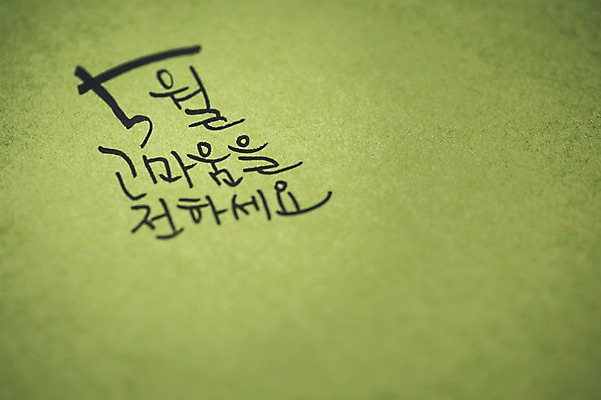 5월
고마움을
전하세요